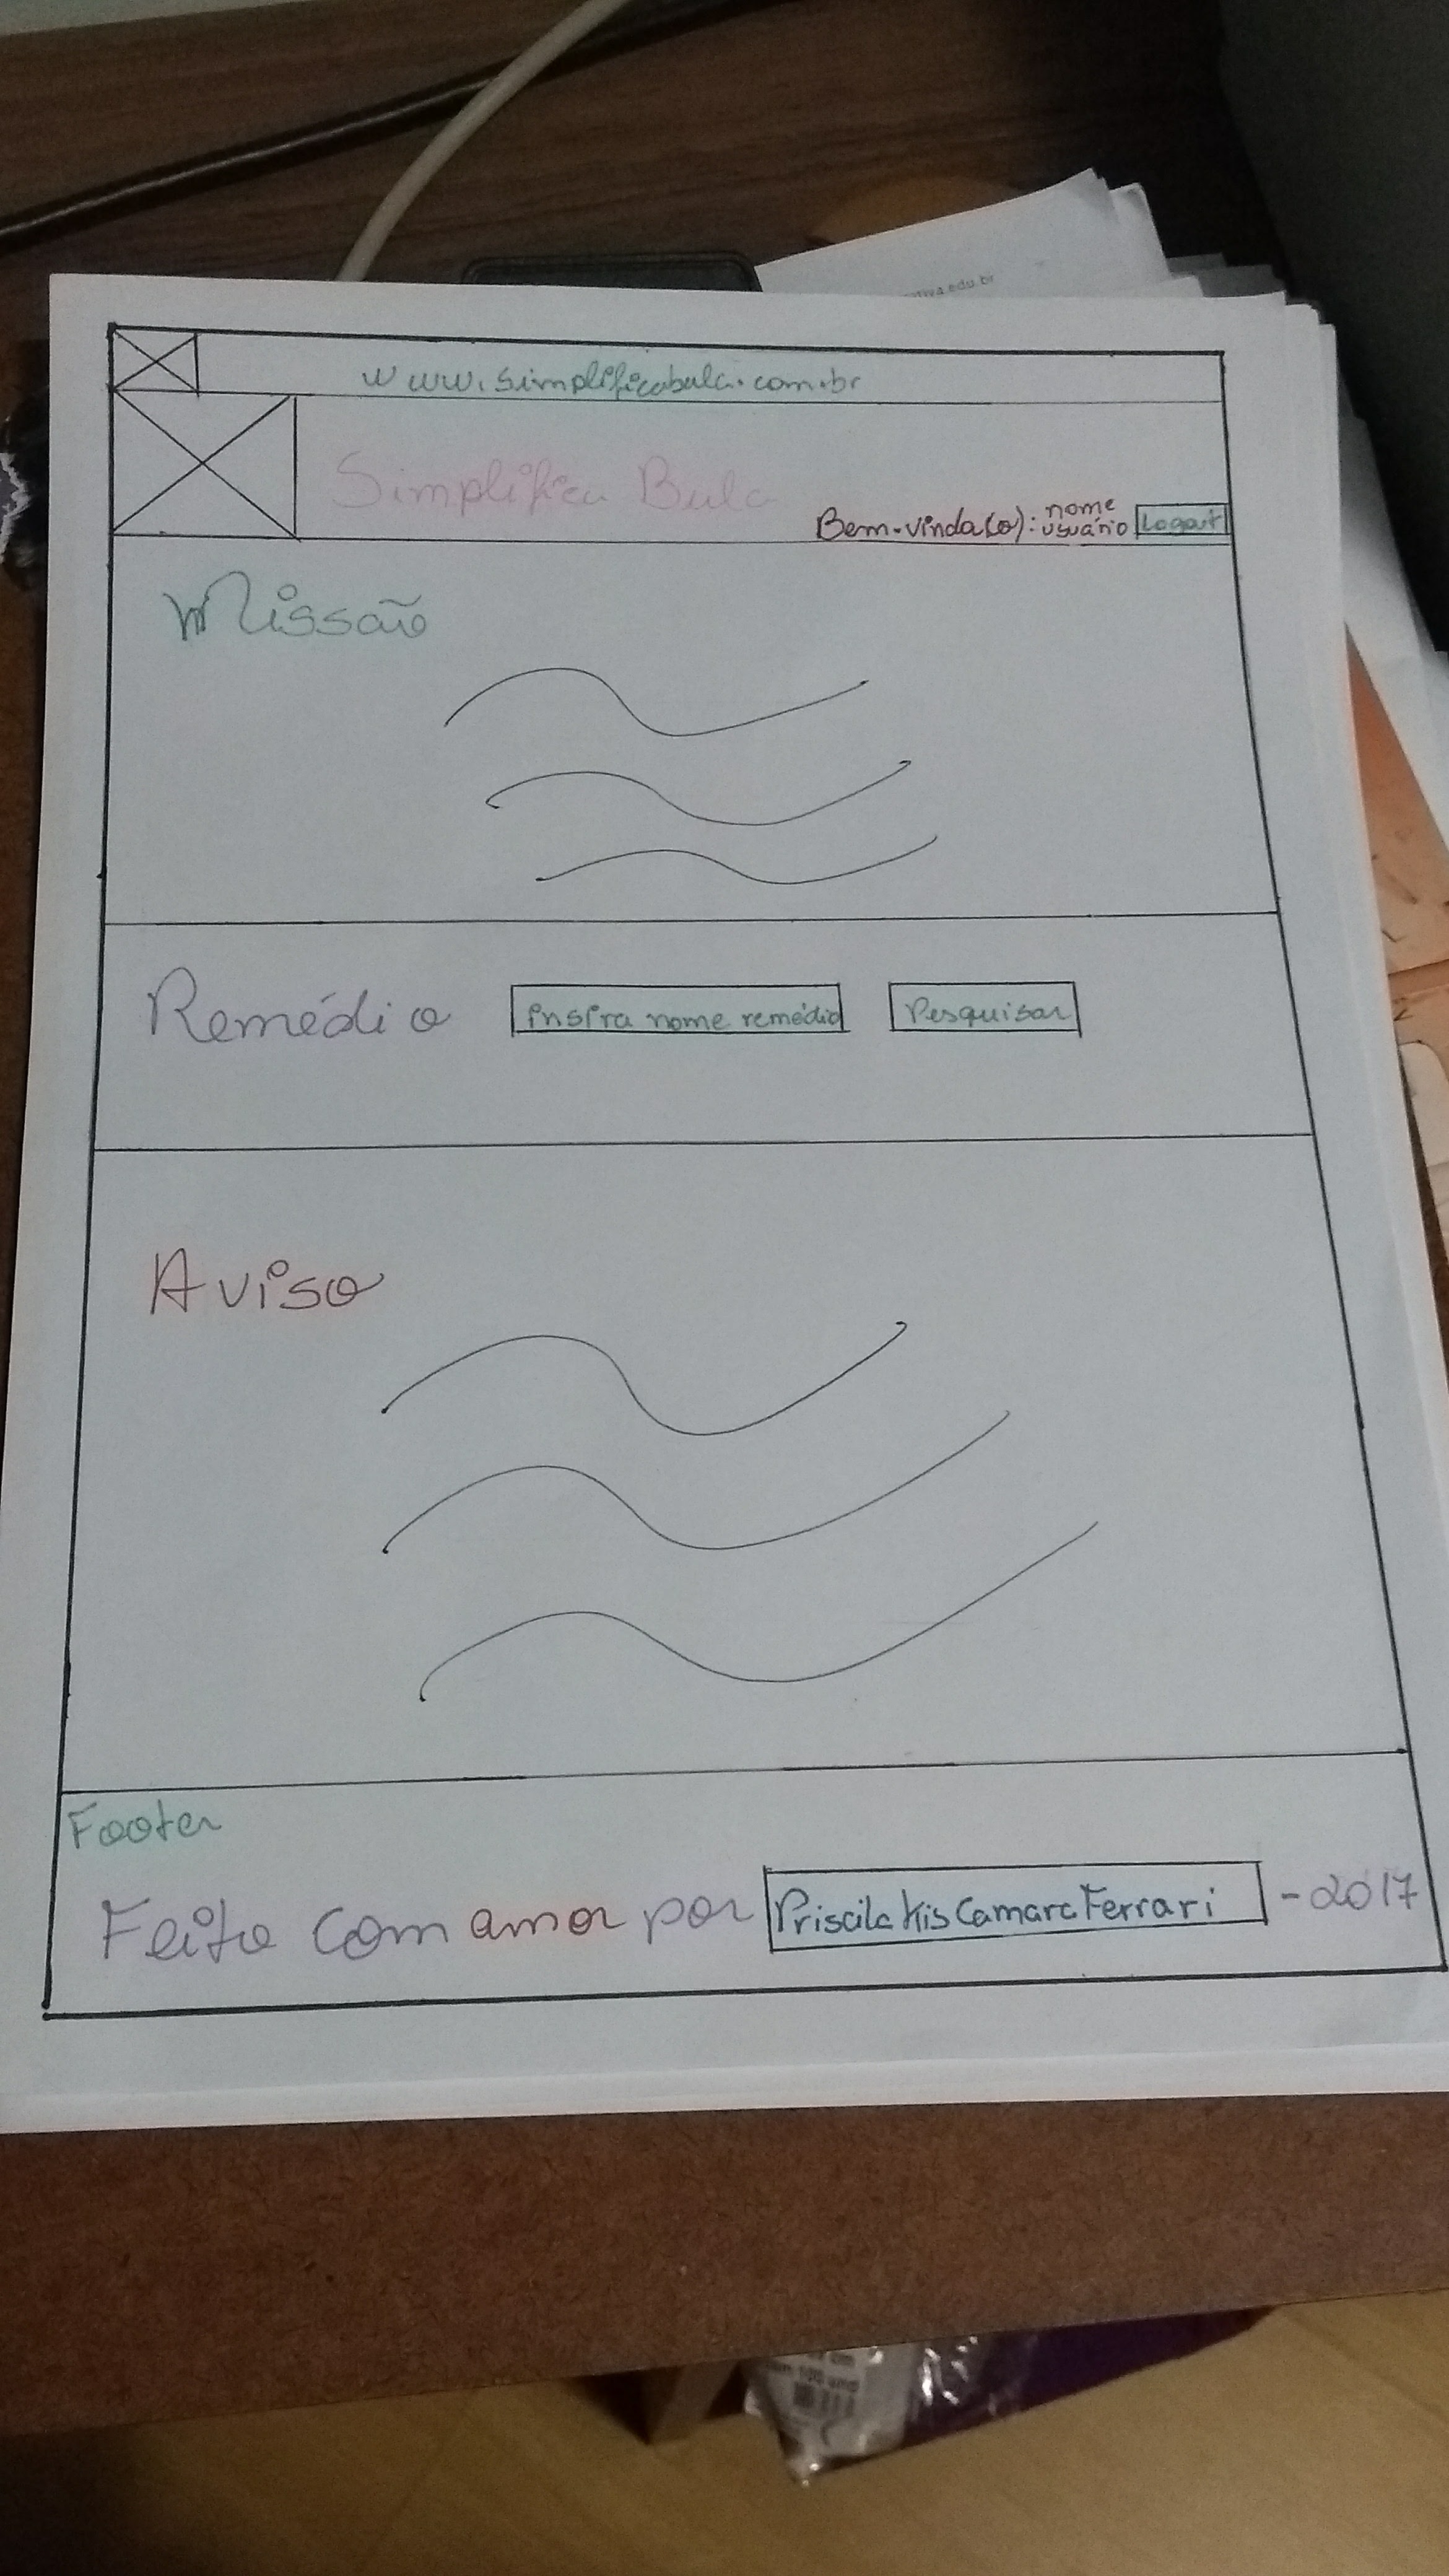 tiva.edu.br
www.simplificabula.com.br
Simplifica Bula
Bem-vinda(o): nome usuário Logout
Missão
Remédio insira nome remédio Pesquisar
Aviso
Footer
Feito com amor por Priscila Kis Camara Ferrari - 2017
cm
100 und